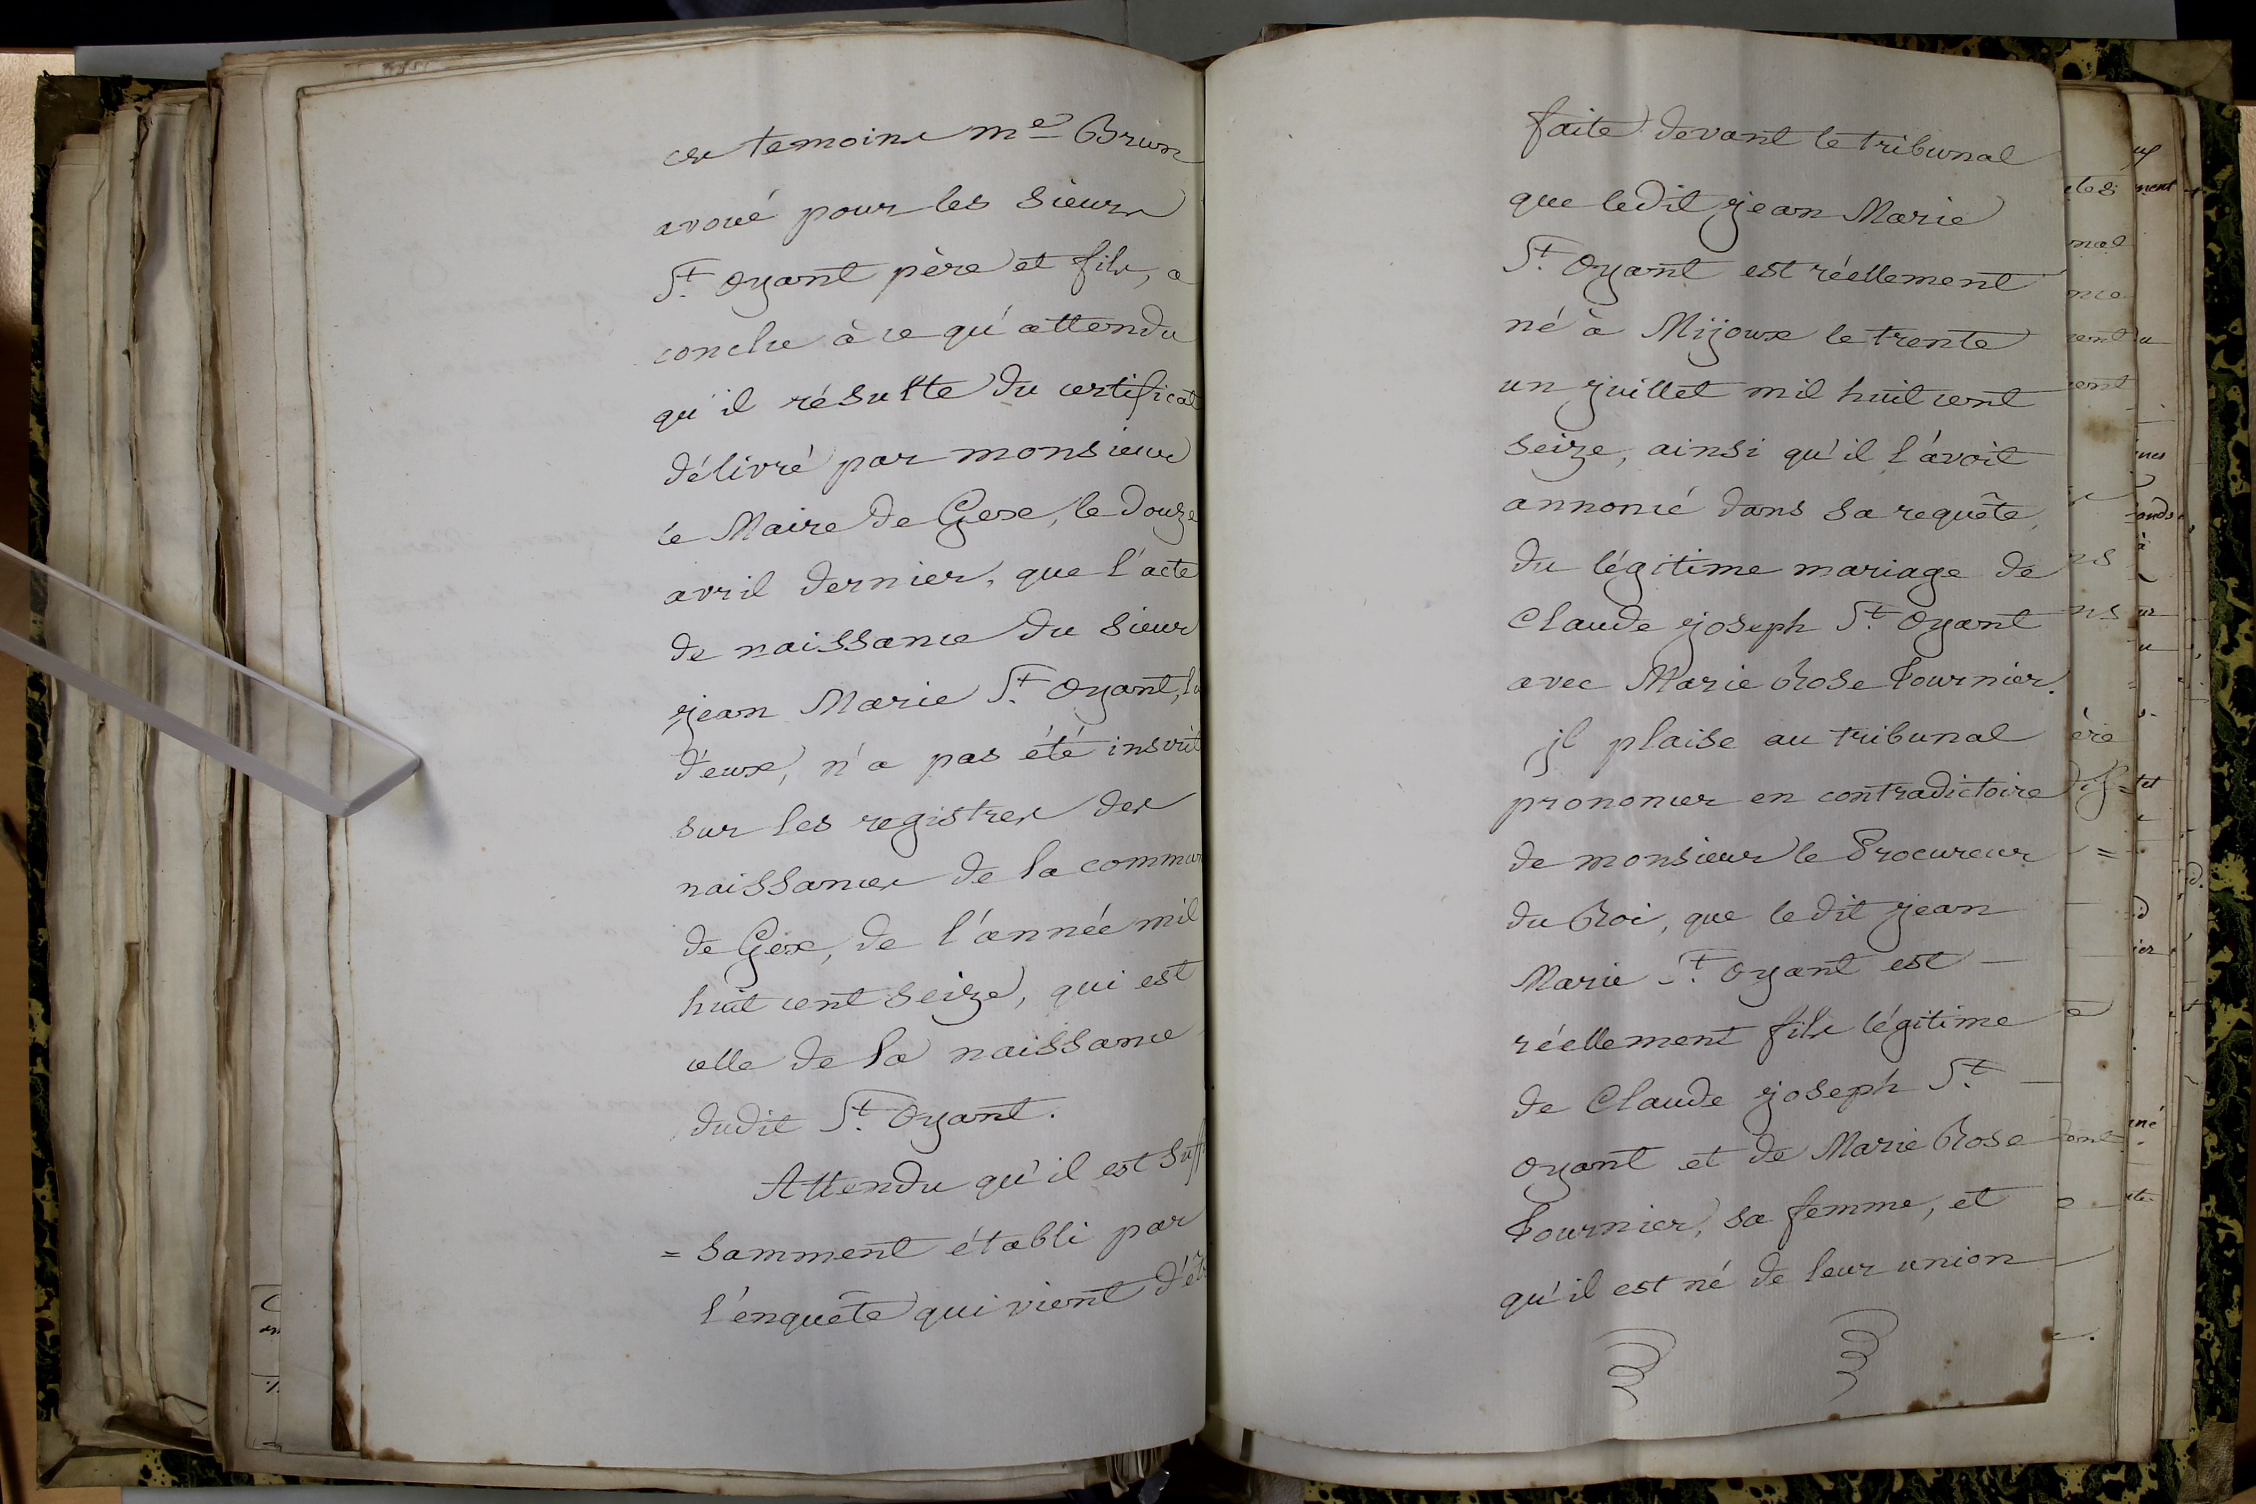 ces temoins me Brun
avoué pour les sieurs
St. Oyant père et fils, a
conclu à ce qu'attendu
qu'il résulte du certificat
délivré par monsieur
le Maire de Gex, le douze
avril dernier, que l'acte
de naissance du sieur
jean Marie St. Oyant, l'u
d'eux, n'a pas été inscrit
sur les registres des
naissances de la commun
de Gex, de l'année mil
huit cent seize, qui est
celle de la naissance
dudit St. Oyant.
Attendu qu'il est suffi
= samment établi par
l'enquête qui vient d'êtr
faite devant le tribunal
que ledit jean Marie
St. Oyant est réellement
né à Mijoux le trente
un juillet mil huit cent
seize, ainsi qu'il l'avoit
annoncé dans sa requête,
du légitime mariage de
Claude joseph St. Oyant
avec Marie Rose Fournier.
jl plaise au tribunal
prononcer en contradictoire
de monsieur le Procureur
du Roi, que ledit jean
Marie St. Oyant est —
réellement fils légitime
de Claude joseph St. —
Oyant et de Marie Rose
Fournier, sa femme, et
qu'il est né de leur union